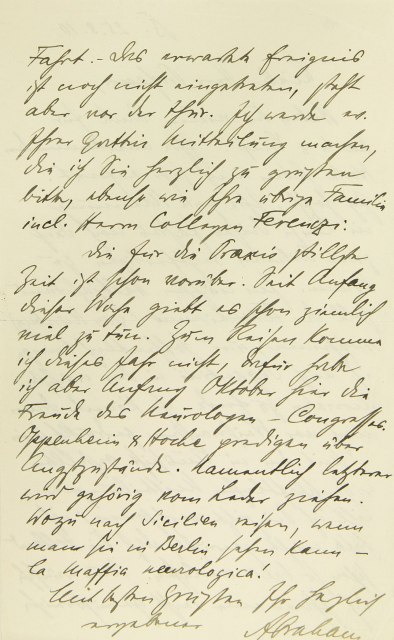 Fahrt. – Das erwartete Ereignis
ist noch nicht eingetreten, steht
aber vor der Thür. Ich werde es
Ihrer Gattin Mitteilung machen,
die ich Sie herzlich zu grüßen
bitte, ebenso wie Ihre übrige Familie
incl. Herrn Collegen Ferenczi.
Die für die Praxis stillste
Zeit ist schon vorüber. Seit Anfang
dieser Woche giebt es schon ziemlich
viel zu tun. Zum Reisen komme
ich dieses Jahr nicht, dafür habe
ich aber Anfang Oktober hier die
Freude des Neurologen-Congresses.
Oppenheim & Hoche predigen über
Angstzustände. Namentlich letzterer
wird gehörig vom Leder ziehen.
Wozu nach Sicilien reisen, wenn
man sie in Berlin sehen kann –
la maffia neurologica!
Mit besten Grüßen Ihr herzlich
ergebener Abraham